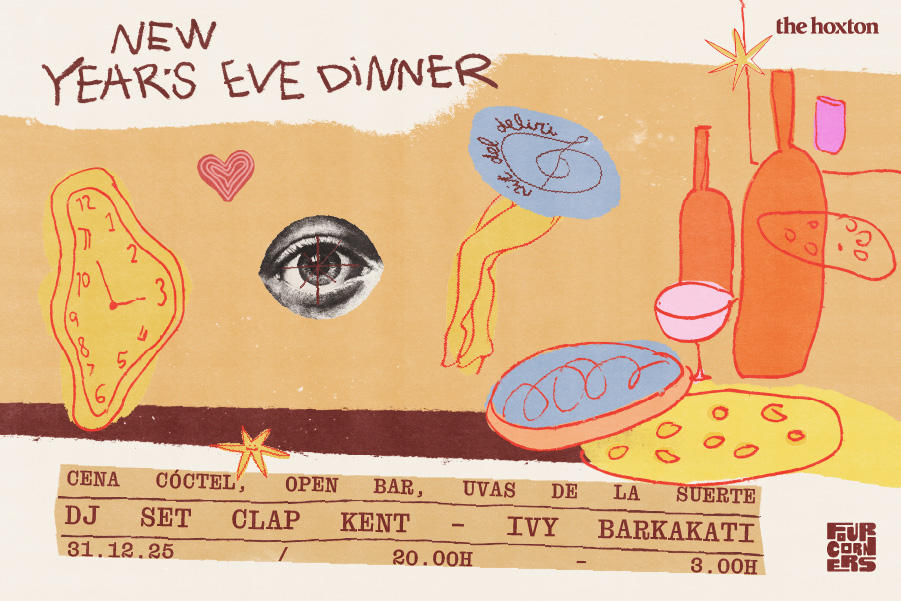 NEW
YEAR'S EVE DINNER
the hoxton
nit del deliri
12
11
1
10
2
9
3
8
4
7
5
6
CENA CÓCTEL, OPEN BAR, UVAS DE LA SUERTE
DJ SET CLAP KENT – IVY BARKAKATI
31.12.25 / 20.00H – 3.00H
FOUR
CORN
ERS